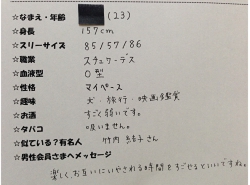 ☆なまえ・年齢 (23)
☆身長 157cm
☆スリーサイズ 85/57/86
☆職業 スチュワーデス
☆血液型 O型
☆性格 マイペース
☆趣味 犬・旅行・映画鑑賞
☆お酒 すごく弱いです。
☆タバコ 吸いません。
☆似ている?有名人 竹内結子さん
☆男性会員さまへメッセージ
楽しく、お互いにいやされる時間をすごせるといいですね。